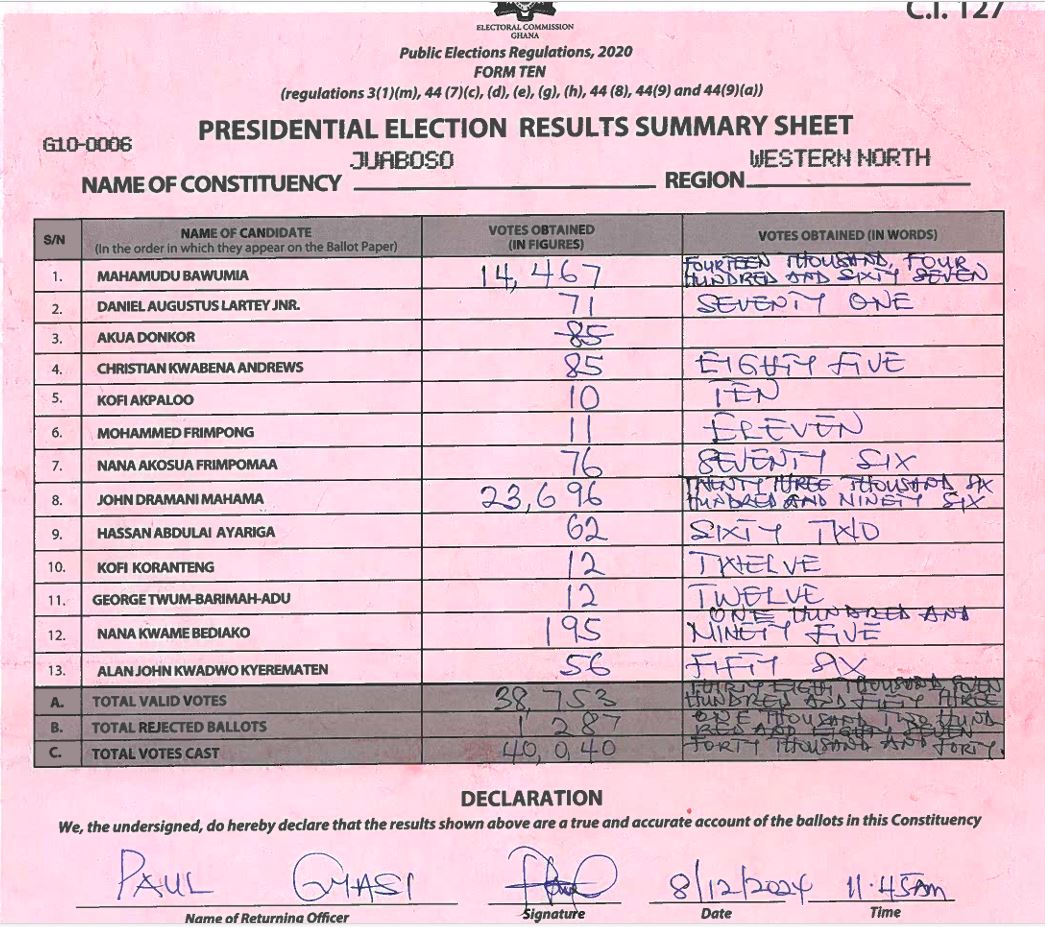 C.I. 127
ELECTORAL COMMISSION
GHANA
Public Elections Regulations, 2020
FORM TEN
(regulations 3(1)(m), 44 (7)(c), (d), (e), (g), (h), 44 (8), 44(9) and 44(9)(a))
PRESIDENTIAL ELECTION RESULTS SUMMARY SHEET
G10-0006
NAME OF CONSTITUENCY JUABOSO REGION WESTERN NORTH
S/N NAME OF CANDIDATE (In the order in which they appear on the Ballot Paper) VOTES OBTAINED (IN FIGURES) VOTES OBTAINED (IN WORDS)
1. MAHAMUDU BAWUMIA 14,467 FOURTEEN THOUSAND, FOUR
HUNDRED AND SIXTY SEVEN
2. DANIEL AUGUSTUS LARTEY JNR. 71 SEVENTY ONE
3. AKUA DONKOR 85
4. CHRISTIAN KWABENA ANDREWS 85 EIGHTY FIVE
5. KOFI AKPALOO 10 TEN
6. MOHAMMED FRIMPONG 11 ELEVEN
7. NANA AKOSUA FRIMPOMAA 76 SEVENTY SIX
8. JOHN DRAMANI MAHAMA 23,696 TWENTY THREE THOUSAND SIX
HUNDRED AND NINETY SIX
9. HASSAN ABDULAI AYARIGA 62 SIXTY TWO
10. KOFI KORANTENG 12 TWELVE
11. GEORGE TWUM-BARIMAH-ADU 12 TWELVE
12. NANA KWAME BEDIAKO 195 ONE HUNDRED AND
NINETY FIVE
13. ALAN JOHN KWADWO KYEREMATEN 56 FIFTY SIX
A. TOTAL VALID VOTES 38,753 THIRTY EIGHT THOUSAND SEVEN
HUNDRED AND FIFTY THREE
B. TOTAL REJECTED BALLOTS 1 287 ONE THOUSAND TWO HUND
RED AND EIGHTY SEVEN
C. TOTAL VOTES CAST 40,040 FORTY THOUSAND AND FORTY.
DECLARATION
We, the undersigned, do hereby declare that the results shown above are a true and accurate account of the ballots in this Constituency
PAUL GYASI 8/12/2024 11.45am
Name of Returning Officer Signature Date Time